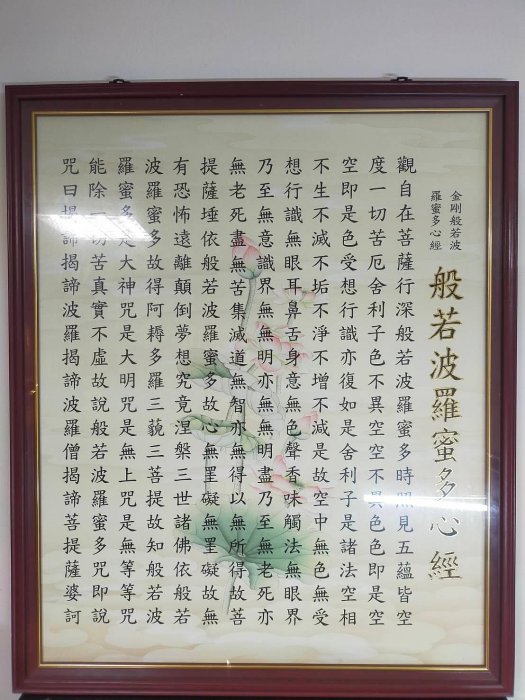 般若波羅蜜多心經
金剛般若波
羅蜜多心經
觀自在菩薩行深般若波羅蜜多時照見五蘊皆空
度一切苦厄舍利子色不異空空不異色色即是空
空即是色受想行識亦復如是舍利子是諸法空相
不生不滅不垢不淨不增不減是故空中無色無受
想行識無眼耳鼻舌身意無色聲香味觸法無眼界
乃至無意識界無無明亦無無明盡乃至無老死亦
無老死盡無苦集滅道無智亦無得以無所得故菩
提薩埵依般若波羅蜜多故心無罣礙無罣礙故無
有恐怖遠離顛倒夢想究竟涅槃三世諸佛依般若
波羅蜜多故得阿耨多羅三藐三菩提故知般若波
羅蜜多是大神咒是大明咒是無上咒是無等等咒
能除一切苦真實不虛故說般若波羅蜜多咒即說
咒曰揭諦揭諦波羅揭諦波羅僧揭諦菩提薩婆訶